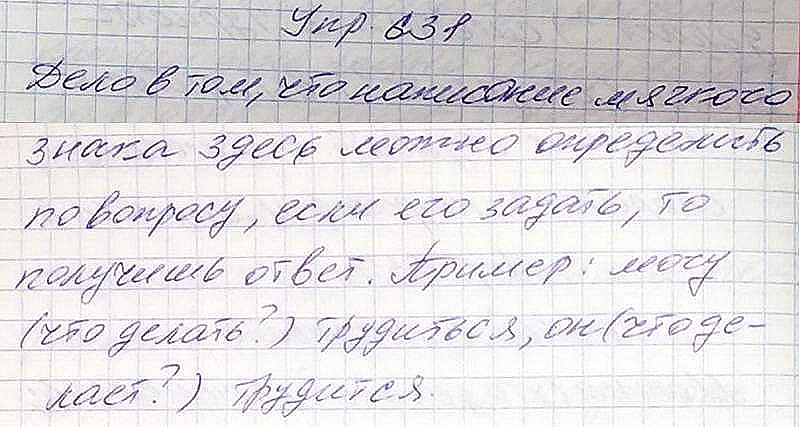 Упр. 631
Дело в том, что написание мягкого
знака здесь можно определить
по вопросу, если его задать, то
получишь ответ. Пример: могу
(что делать?) трудиться, он (что де-
лает?) трудится.